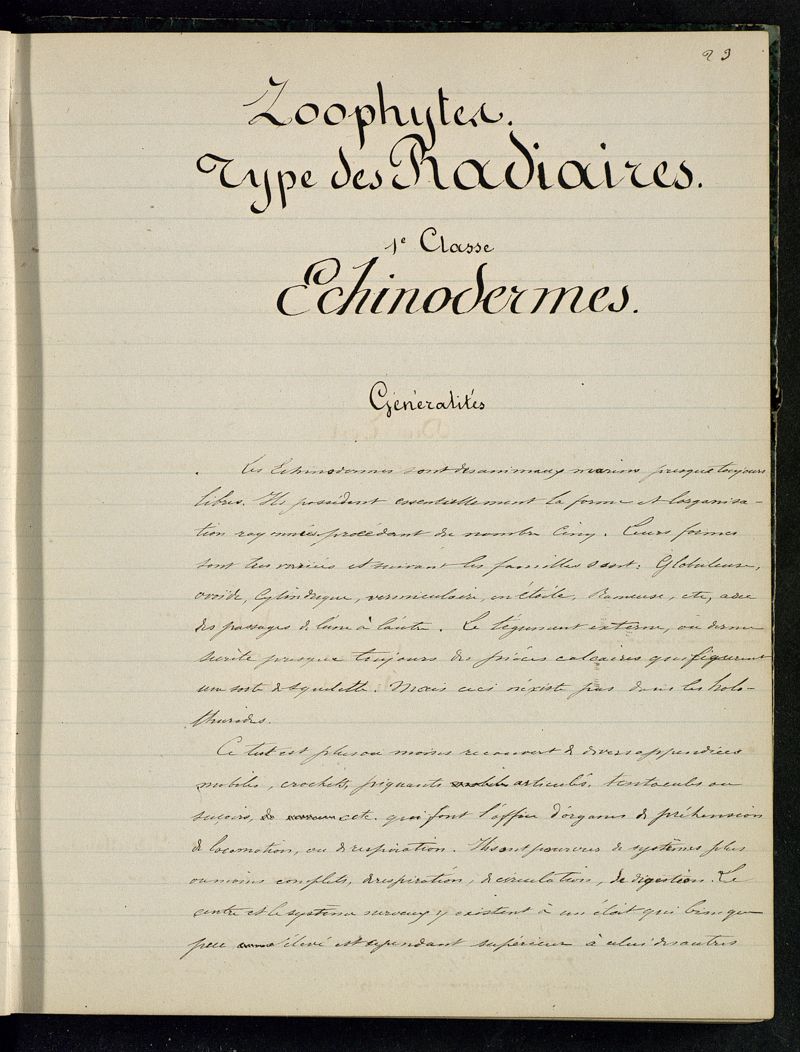 23
Zoophytes.
Type des Radiaires.
1e Classe
Echinodermes.
Généralités
Les Echinodermes sont des animaux marins presque toujours
libres. Ils possèdent essentiellement la forme et l'organisa-
tion rayonnées procédant du nombre Cinq. Leurs formes
sont très variées et suivant les familles sont: Globuleuse,
ovoïde, Cylindrique, vermiculaire, en étoile, Rameuse, etc, avec
des passages de l'une à l'autre. Le tégument externe, ou derme
secrète presque toujours des pièces calcaires qui figurent
une sorte de squelette. Mais ceci n'existe pas dans les holo-
thurides.
Ce test est plus ou moins recouvert de divers appendices
mobiles, crochets, piquants articulés, tentacules ou
suçoirs, etc. qui font l'office d'organes de préhension
de locomotion, ou de respiration. Ils sont pourvus de systèmes plus
ou moins complets, de respiration, de circulation, de digestion. Le
centre et le système nerveux y existent à un état qui bien que
peu élevé est cependant supérieur à celui des autres